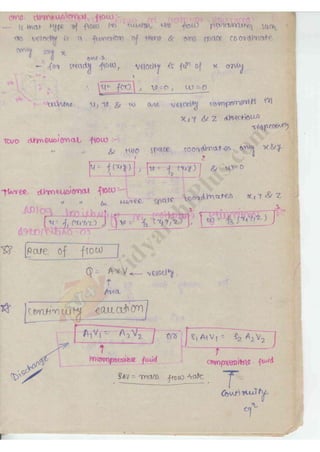 one dimensional flow
- is that type of flow in which the flow parameter such
as velocity is a function of time & one space coordinate
only say x
- for steady flow, velocity is fⁿ of x only
u = f(x), v=0, w=0
where u, v & w are velocity components in
x, y & z directions
respectively
Two dimensional flow :-
" " & two space coordinates only x & y
u = f₁(x,y), v = f₂(x,y) & w=0
Three dimensional flow -
" " & three space coordinates x, y & z
u = f₁(x,y,z) v = f₂(x,y,z) w = f₃(x,y,z)
Rate of flow
Q = A×V ← velocity
Area
Continuity equation
A₁V₁ = A₂V₂ or ρ₁A₁V₁ = ρ₂A₂V₂
Discharge incompressible fluid compressible fluid
ρAV = mass flow rate
Continuity
eqⁿ